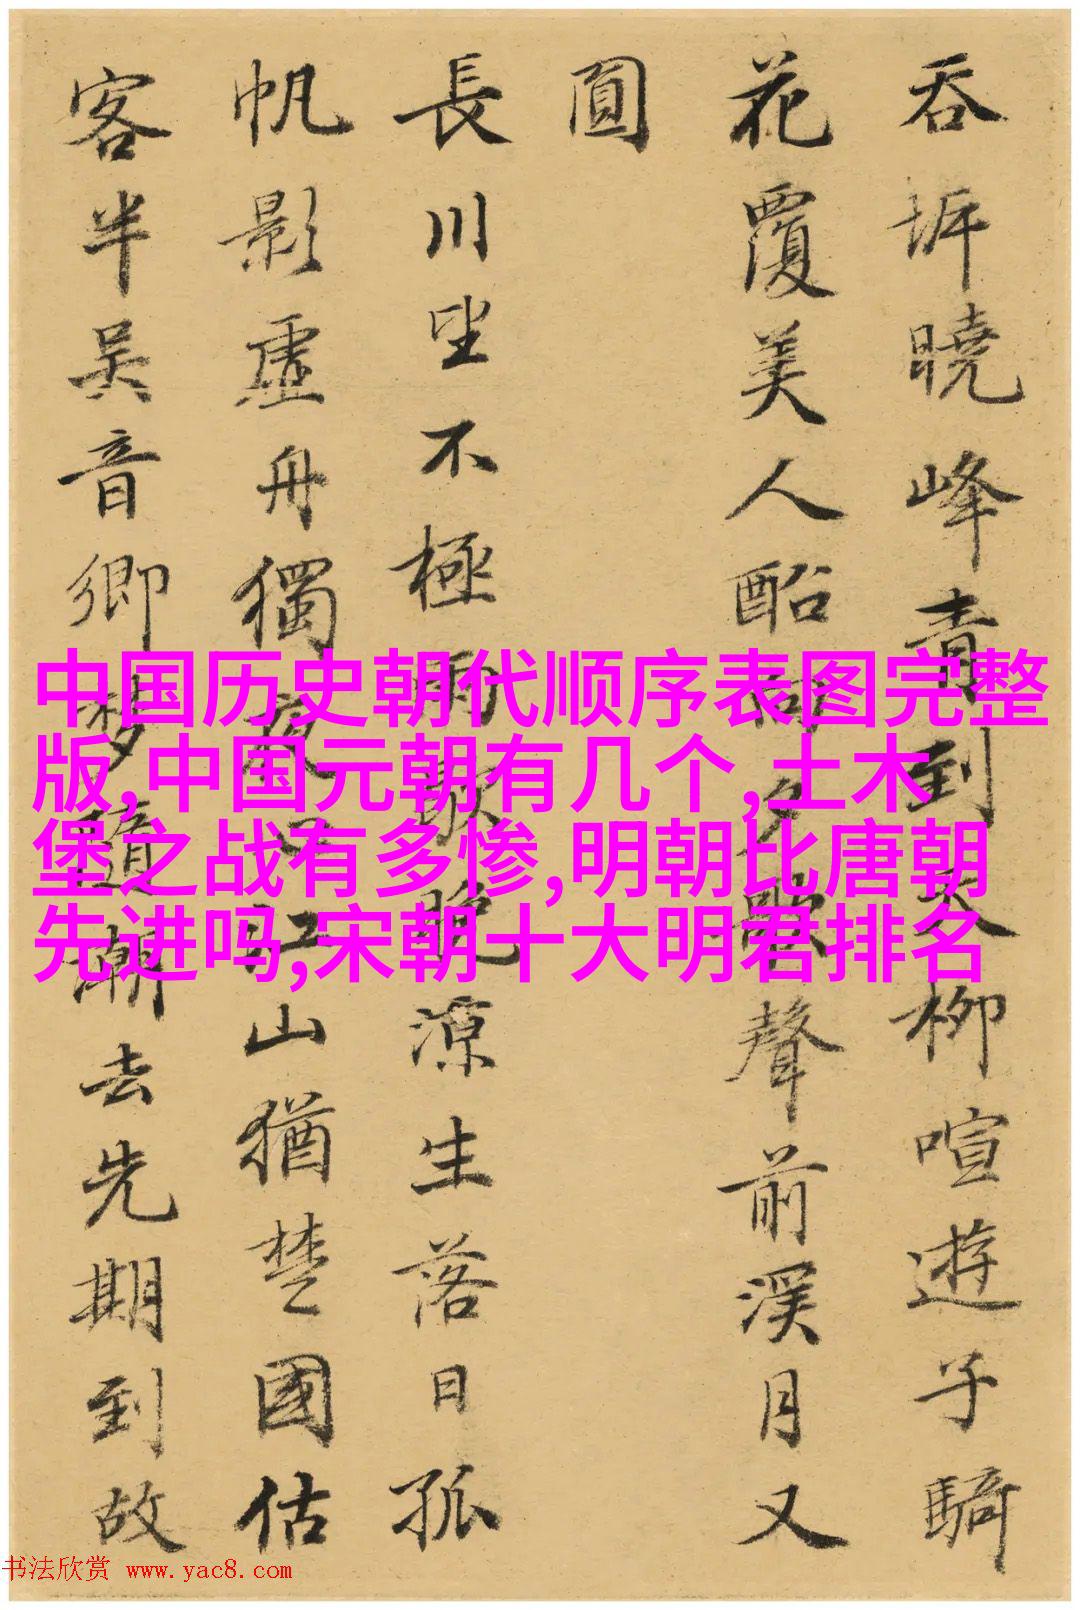 吞坼曉峰青到天柳喧遊子騎
花覆美人酩夕歌聲前溪月又
圓
長川坐不極雨歇晚涼生落日孤
帆影虛舟獨夜江山猶楚國估
客半吳音鄉夢隨潮去先期到故
中国历史朝代顺序表图完整
版,中国元朝有几个,土木
堡之战有多惨,明朝比唐朝
先进吗,宋朝十大明君排名
书法欣赏 www.yac8.com